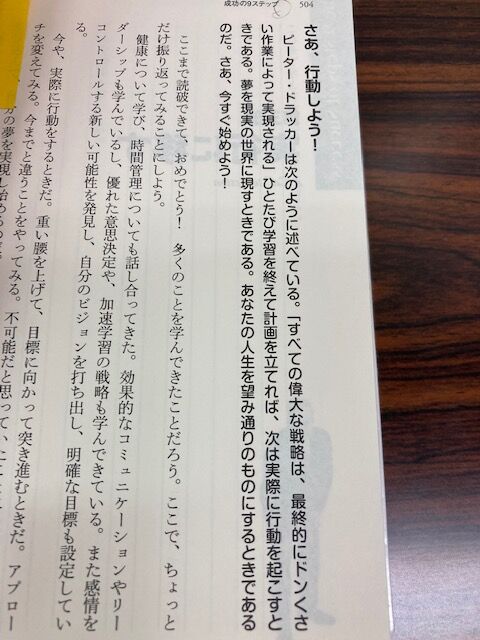 成功の9ステップ
504
さあ、行動しよう！
ピーター・ドラッカーは次のように述べている。「すべての偉大な戦略は、最終的にドンくさ
い作業によって実現される」ひとたび学習を終えて計画を立てれば、次は実際に行動を起こすと
きである。夢を現実の世界に現すときである。あなたの人生を望み通りのものにするときである
のだ。さあ、今すぐ始めよう！
ここまで読破できて、おめでとう！　多くのことを学んできたことだろう。ここで、ちょっと
だけ振り返ってみることにしよう。
健康について学び、時間管理についても話し合ってきた。効果的なコミュニケーションやリー
ダーシップも学んでいるし、優れた意思決定や、加速学習の戦略も学んできている。また感情を
コントロールする新しい可能性を発見し、自分のビジョンを打ち出し、明確な目標も設定してい
る。
今や、実際に行動をするときだ。重い腰を上げて、目標に向かって突き進むときだ。アプロー
チを変えてみる。今までと違うことをやってみる。不可能だと思っていたこと
の夢を実現し始める